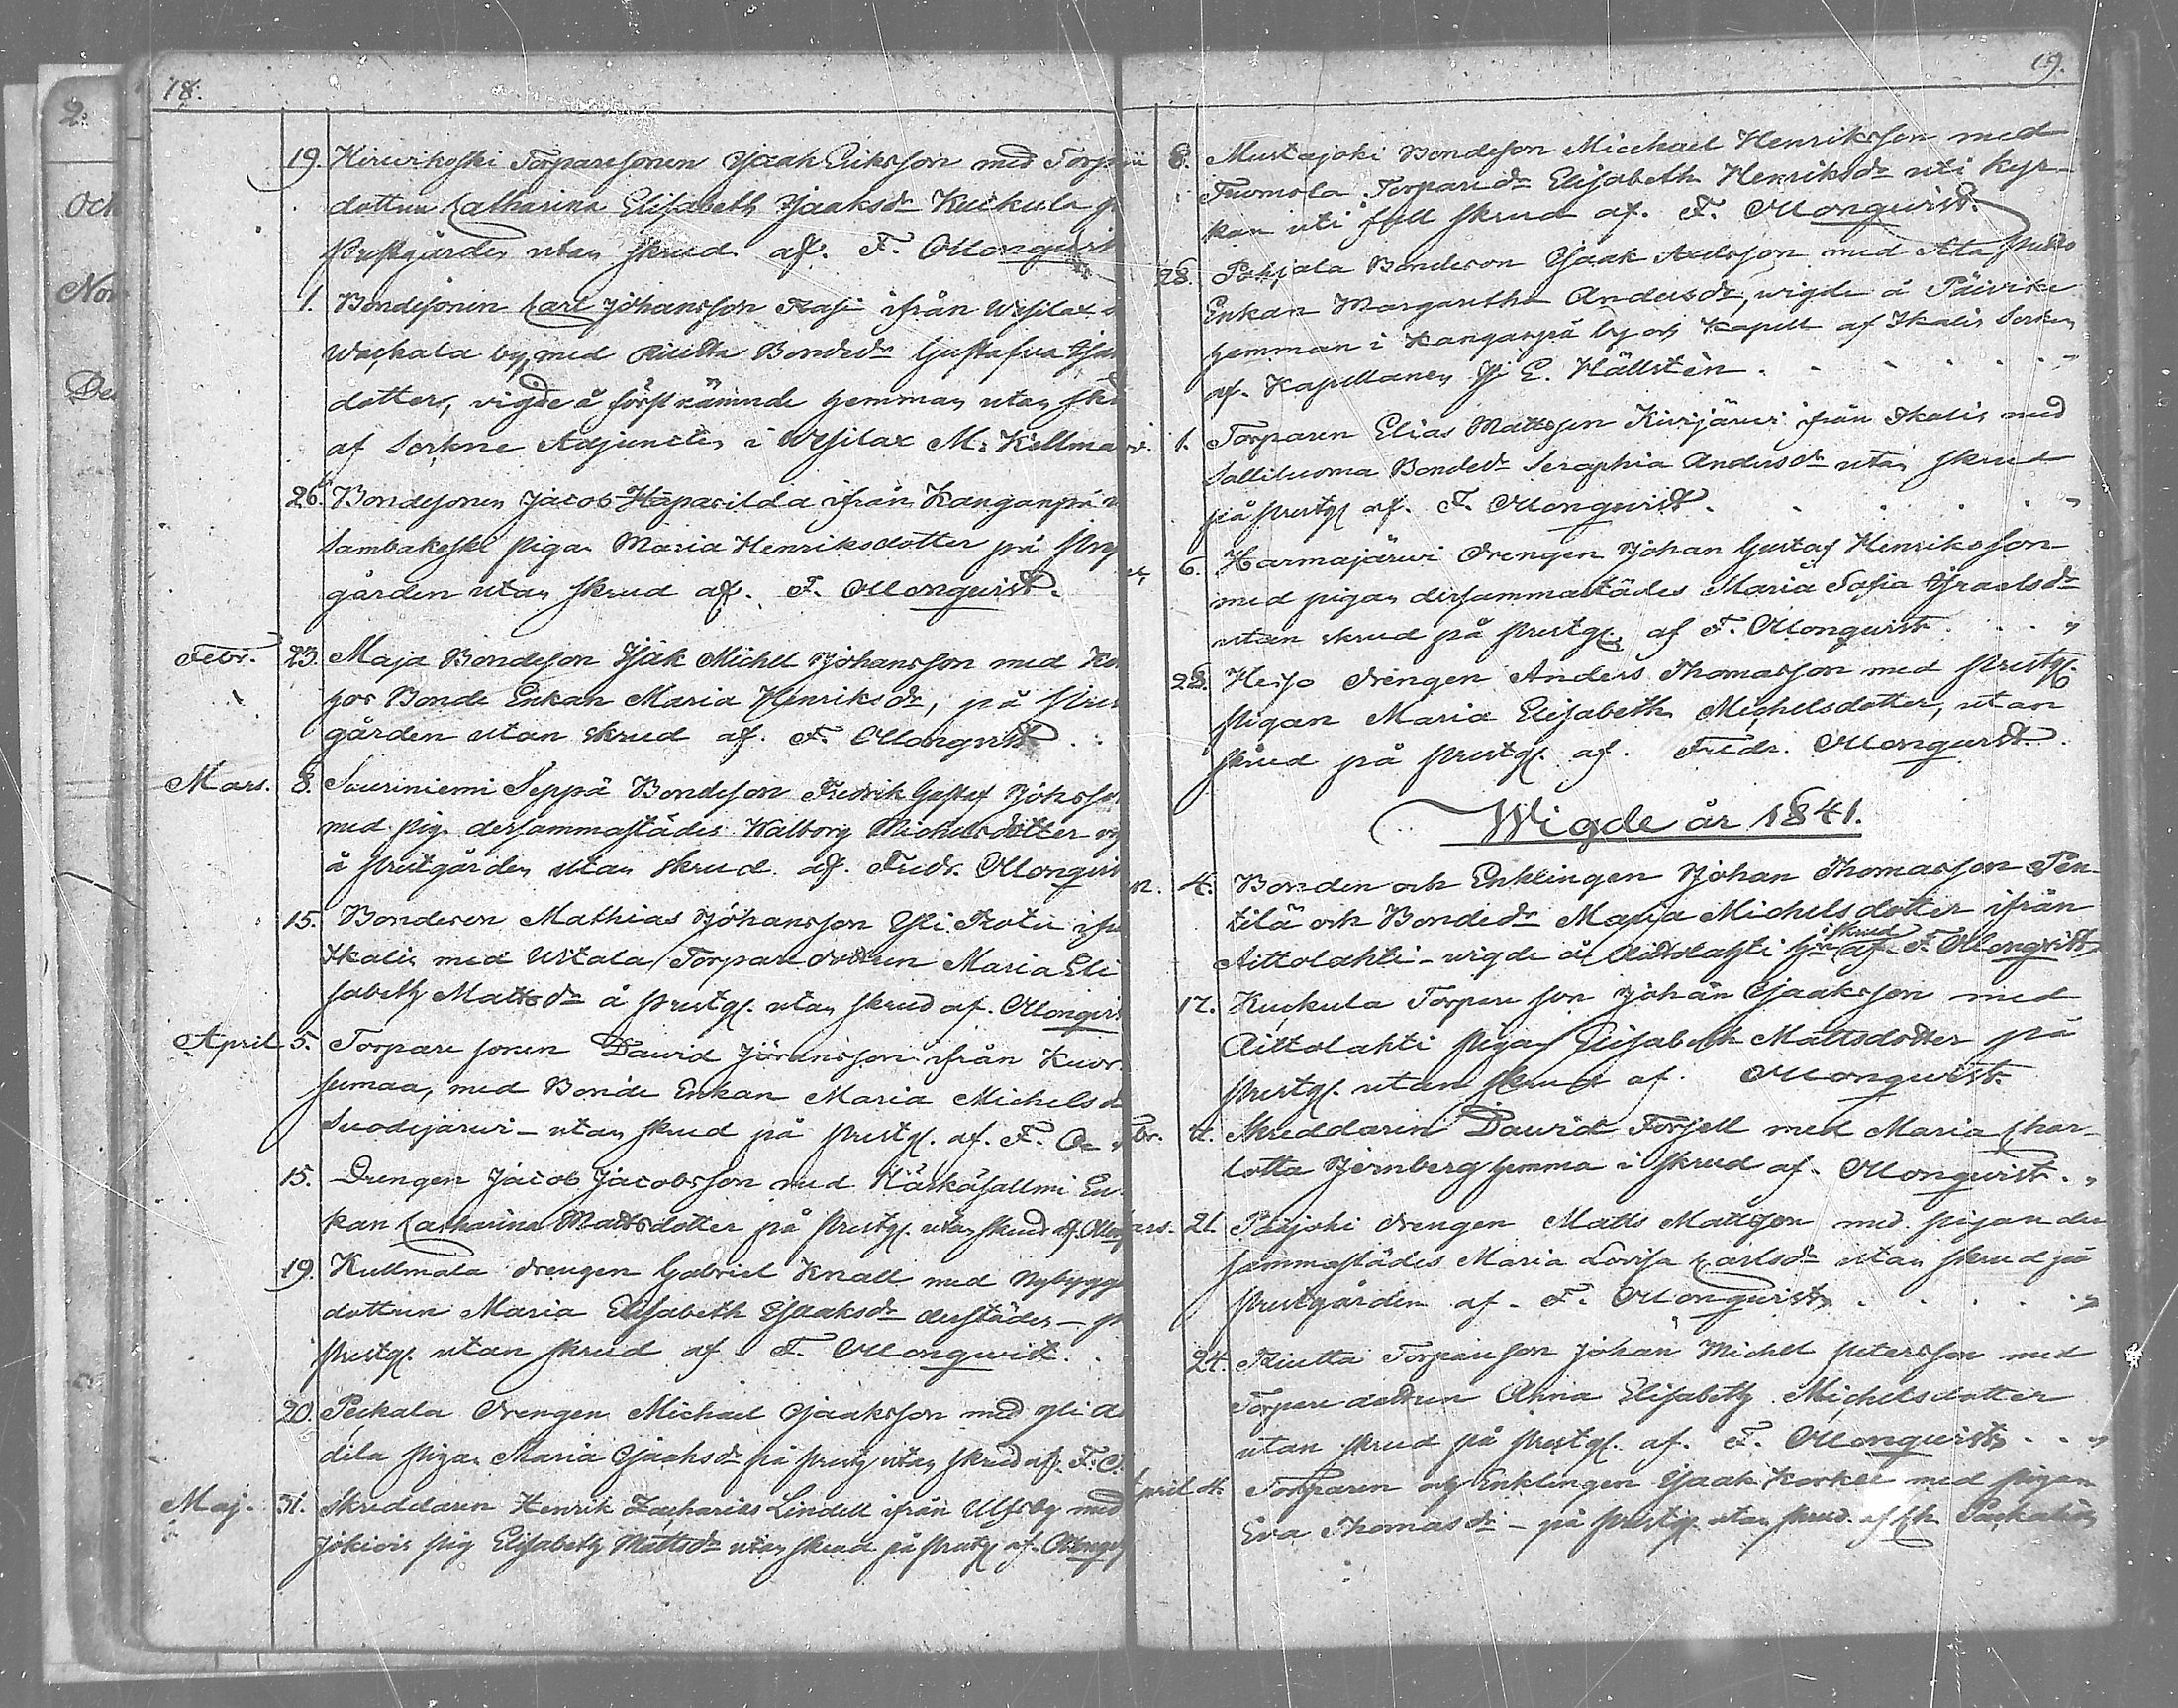 18.
19. Kirwikoski Torparesonen Isaak Eriksson med Torp
dottren Catharina Elisabeth Isaaksdr Kuckula
Prestgården utan skrud af. F. Mongvist
1. Bondesonen Carl Johansson Rasi ifrån Wesilax
Wackala by, med Riutta Bondedr Gustafva
dotter, vigde å först nämnde hemman utan
af Sockne Adjuncten i Wesilax M. Kellman
26. Bondesonen Jacob Haparilda ifrån Kangan
Sambakoski pigan Maria Henriksdotter på
gården utan skrud af. F. Mongvist.
Febr. 23. Maja Bondeson Isak Michel Johansson med
Bonde Enkan Maria Henriksdr, på
gården utan skrud af. F. Mongvist
Mars. 8. Sauriniemi Seppä Bondeson Fredrik Gustaf Johsson
med pig. dersammastädes Walborg Michelsdotter
å prestgården utan skrud af. Fredr. Mongvist
15. Bondeson Mathias Johansson Yli Rotu
Ikalis med Uitala Torpare dottren Maria Eli
sabeth Mattsdr å prestg. utan skrud af. Mongvist
April 5. Torpare sonen David Jöransson ifrån Kuor
sumaa, med Bonde Enkan Maria Michelsdr
Suodijärvi - utan skrud på prestg. af. F.
15. Drengen Jacob Jacobsson med Kärkäsallmi En
kan Catharina Mattsdotter på prestg. utan skrud af.
19. Kullmala drengen Gabriel Knall med Nybygg
dottren Maria Elisabeth Isaaksdr derstädes -
prestg. utan skrud af F. Mongvist.
20. Peckala drengen Michael Isaaksson med Yli
dila pigan Maria Isaaksdr på prestg utan skrud af. F.
Maj. 31. Skreddaren Henrik Zacharias Lindell ifrån Ulfsby med
Jokiois pig Elisabeth Mattsdr utan skrud på prestg af.
19.
8. Mustajoki Bondeson Michael Henriksson med
Tuomola Torparedr Elisabeth Henriksdr uti kyr-
kan uti full skrud af. F. Mongvist.
28. Pohjala Bondeson Isaak Axelsson med
Enkan Margaretha Andersdr, vigde å Päivike
hemman i Kanganpä by och Kapell af Ikalis Socken
af. Kapellanen E. Hällstén
1. Torparen Elias Mattsson Kivijärvi från Ikalis med
Salliluoma Bondedr Seraphia Andersdr utan skrud
på prestg af. F. Mongvist.
6. Harmajärvi drengen Johan Gustaf Henriksson
med pigan dersammastädes Maria Sofia Israelsdr
utan skrud på prestg. af F. Mongvist.
28. Heiso drengen Anders Thomasson med prestg.
pigan Maria Elisabeth Michelsdotter, utan
skrud på prestg. af. Fredr. Mongvist.
Wigde år 1841.
4. Bonden och Enklingen Johan Thomasson Pen-
tilä och Bondedr Maria Michelsdotter ifrån
i skrud
Aittolahti - vigde å Aittolahti af F. Mongvist
17. Kuckula Torpare son Johan Isaaksson med
Aittolahti pigan Elisabeth Mattsdotter på
prestg. utan skrud af. Mongvist.
Skreddaren David Forsell med Maria Char-
lotta Jernberg hemma i skrud af. Mongvist.
21. Päijoki drengen Matts Mattsson med pigan der
sammastädes Maria Lovisa Carlsdr utan skrud på
prestgården af. F. Mongvist
24. Riutta Torpareson Johan Michel Petersson med
Torpare dottren Anna Elisabeth Michelsdotter
utan skrud på prestg. af. F. Mongvist
April 4. Torparen och Enklingen Isaak Korkee med pigan
Eva Thomasdr - på prestg. utan skrud. af